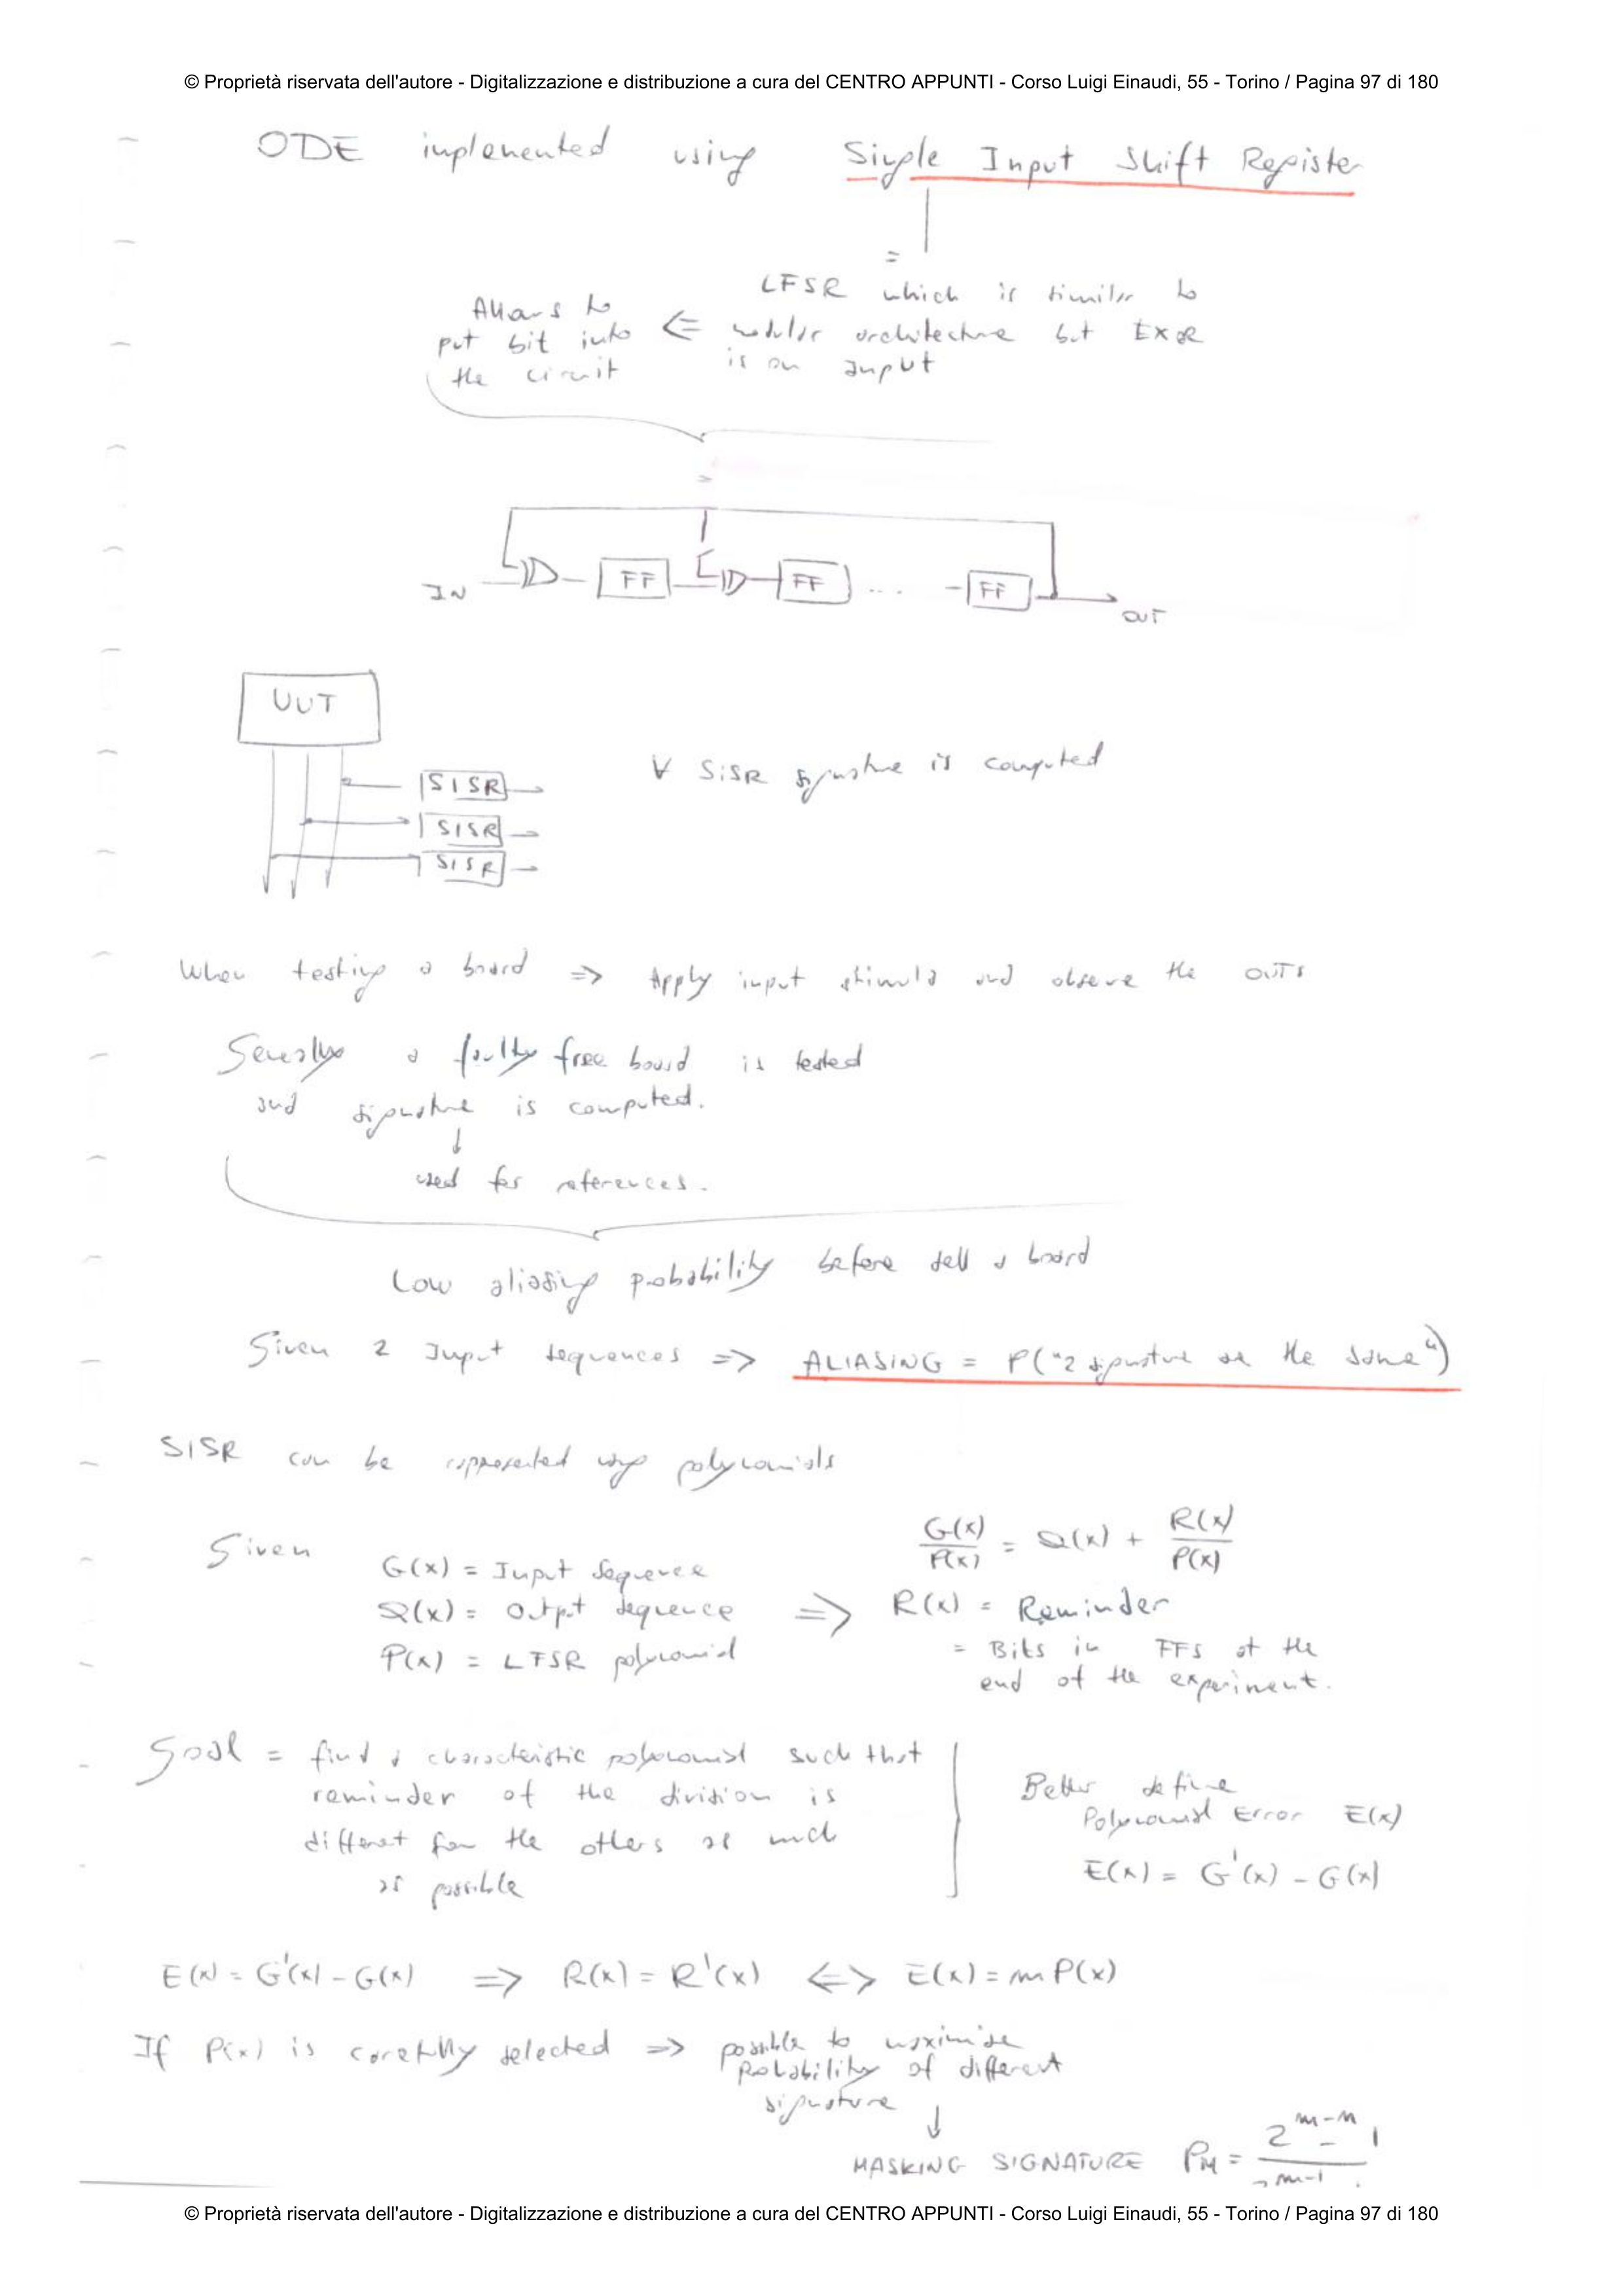 © Proprietà riservata dell'autore - Digitalizzazione e distribuzione a cura del CENTRO APPUNTI - Corso Luigi Einaudi, 55 - Torino / Pagina 97 di 180
ODE implemented using Single Input Shift Register
=
LFSR which is similar to
modular architecture but EXOR
is an Input
<=
Allows to
put bit into
the circuit
IN FF FF ... FF OUT
UUT
SISR
SISR
SISR
∀ SISR signature is computed
When testing a board => Apply input stimula and observe the OUTs
Generally a faulty free board is tested
and signature is computed.
↓
used for references.
Low aliasing probability before sell a board
Given 2 Input sequences => ALIASING = P("2 signature are the same")
SISR can be represented using polynomials
Given
G(x) = Input Sequence
Q(x) = Output sequence
P(x) = LFSR polynomial
=>
G(x)/P(x) = Q(x) + R(x)/P(x)
R(x) = Reminder
= Bits in FFs at the
end of the experiment.
Goal = find a characteristic polynomial such that
reminder of the division is
different from the others as much
as possible
Better define
Polynomial Error E(x)
E(x) = G'(x) - G(x)
E(x) = G'(x) - G(x) => R(x) = R'(x) <=> E(x) = m P(x)
If P(x) is carefully selected => possible to maximise
Probability of different
signature
↓
MASKING SIGNATURE P_M = 2^(m-n) - 1
© Proprietà riservata dell'autore - Digitalizzazione e distribuzione a cura del CENTRO APPUNTI - Corso Luigi Einaudi, 55 - Torino / Pagina 97 di 180